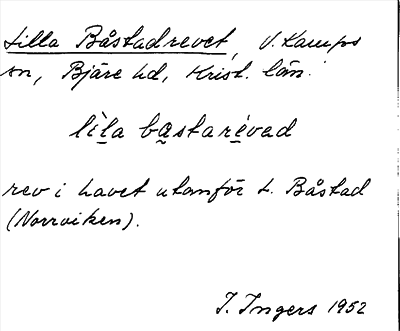 Lilla Båstadrevet, V. Karups
sn, Bjäre hd, Krist. län.
lìl̲a ba̰starè̲vəd
rev i havet utanför L. Båstad
(Norrviken).
I. Ingers 1952